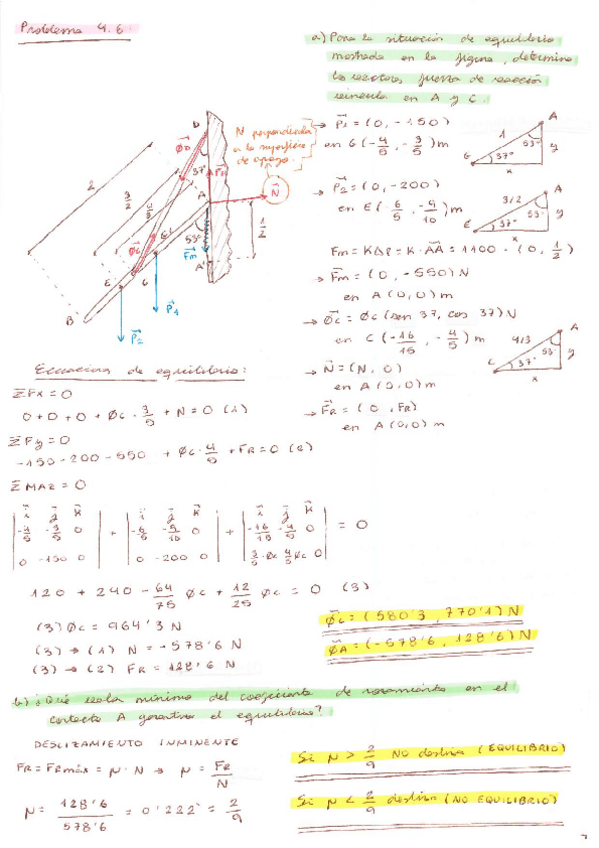 Problema 4.6
a) Para la situación de equilibrio
mostrada en la figura, determina
los vectores fuerza de reacción
vincular en A y C.
N perpendicular
a la superficie
de apoyo.
D
ΦD
37
FR
N
A
2
3/2
4/3
1/2
53°
ΦC
C
Fm
A'
E
G
B
P1
P2
→ P1 = (0, -150)
en G (-4/5, -3/5) m
1
A
53°
y
G
37°
x
→ P2 = (0, -200)
en E (-6/5, -9/10) m
3/2
A
53°
y
E
37°
x
Fm = KΔP = K·AA' = 1100 · (0, 1/2)
→ Fm = (0, -550) N
en A (0,0) m
→ ΦC = ΦC (sen 37, cos 37) N
en C (-16/15, -4/5) m
4/3
A
53°
y
C
37°
x
→ N = (N, 0)
en A (0,0) m
→ FR = (0, FR)
en A (0,0) m
Ecuaciones de equilibrio:
ΣFx = 0
0 + 0 + 0 + ΦC · 3/5 + N = 0 (1)
ΣFy = 0
-150 - 200 - 550 + ΦC · 4/5 + FR = 0 (2)
ΣMAZ = 0
| i j k | | i j k | | i j k |
| -4/5 -3/5 0 | + | -6/5 -9/10 0 | + | -16/15 -4/5 0 | = 0
| 0 -150 0 | | 0 -200 0 | | 3/5·ΦC 4/5 ΦC 0 |
120 + 240 - 64/75 ΦC + 12/25 ΦC = 0 (3)
(3) ΦC = 964'3 N
(3) → (1) N = -578'6 N
(3) → (2) FR = 128'6 N
ΦC = (580'3, 770'1) N
ΦA = (-578'6, 128'6) N
b) ¿Qué valor mínimo del coeficiente de rozamiento en el
contacto A garantiza el equilibrio?
DESLIZAMIENTO INMINENTE
FR = FRmáx = μ·N ⇒ μ = FR/N
μ = 128'6/578'6 = 0'222 = 2/9
Si μ > 2/9 NO desliza (EQUILIBRIO)
Si μ < 2/9 desliza (NO EQUILIBRIO)